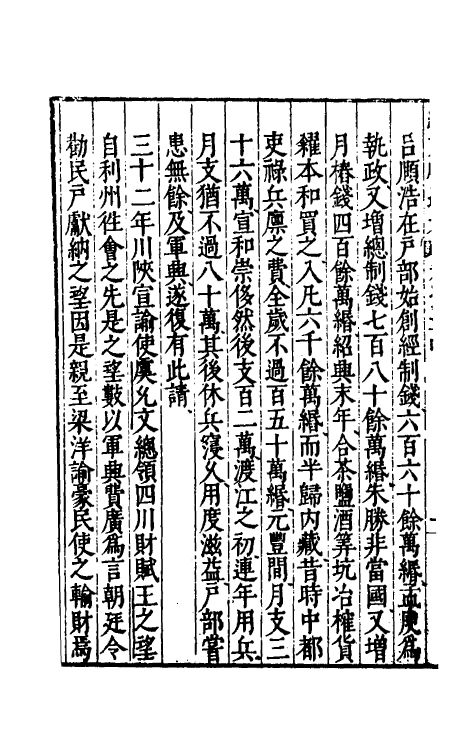 呂頤浩在戸部始創經制錢六百六十餘萬緡孟庾為
執政又增總制錢七百八十餘萬緡朱勝非當國又增
月樁錢四百餘萬緡紹興末年合茶鹽酒筭坑冶榷貨
糴本和買之入凡六千餘萬緡而半歸内藏昔時中都
吏祿兵廪之費全歲不過百五十萬緡元豐間月支三
十六萬宣和崇侈然後支百二萬渡江之初連年用兵
月支猶不過八十萬其後休兵寖久用度滋益戸部嘗
患無餘及軍興遂復有此請
三十二年川陝宣諭使虞允文總領四川財賦王之望
自利州徃會之先是之望數以軍興費廣為言朝廷令
勸民戸獻納之望因是親至梁洋諭豪民使之輸財焉